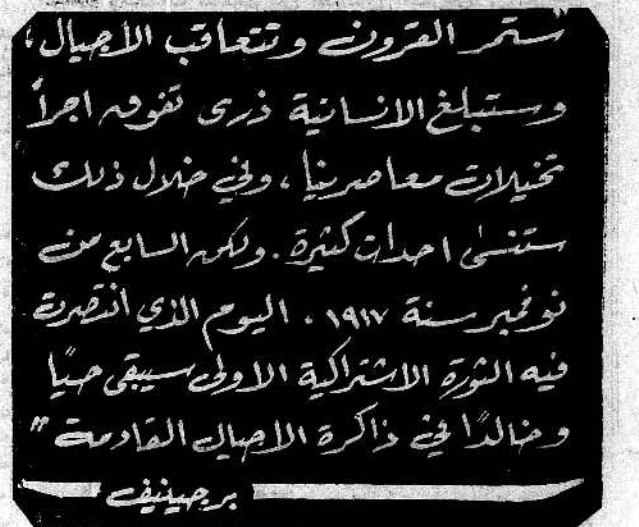 "ستمر القرون وتتعاقب الأجيال،
وستبلغ الانسانية ذرى تفوق اجرأ
تخيلات معاصرينا، وفي خلال ذلك
ستنسى احداث كثيرة. ولكن السابع من
نوفمبر سنة ١٩١٧، اليوم الذي انتصرت
فيه الثورة الاشتراكية الاولى سيبقى حيًا
وخالدًا في ذاكرة الاجيال القادمة"
برجينيف